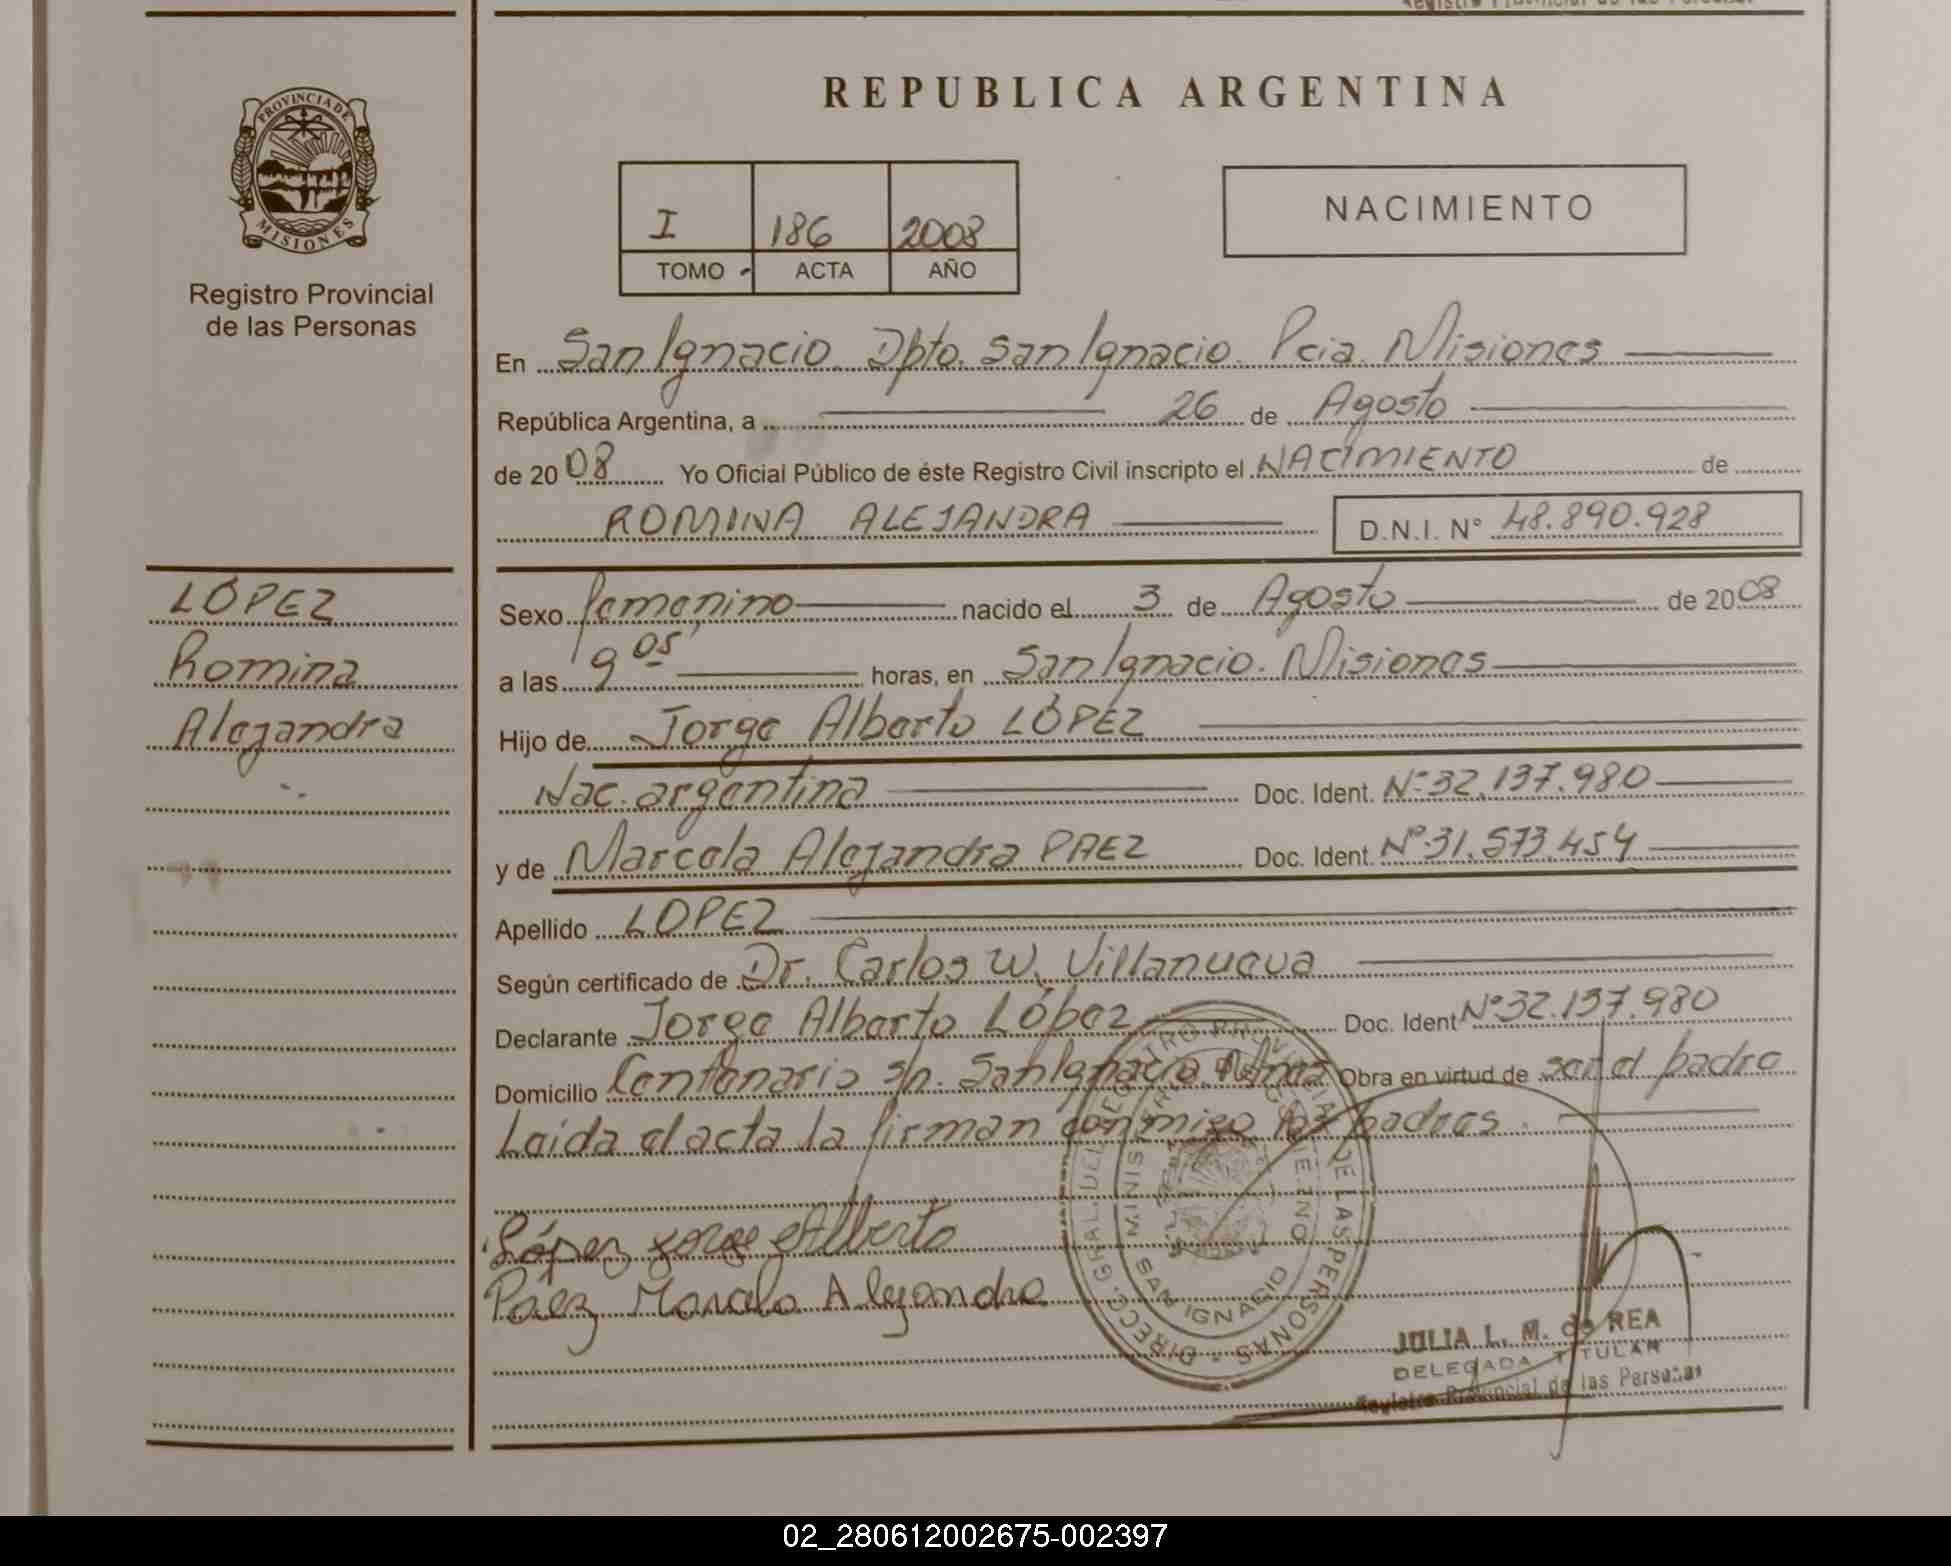 Registro Provincial de las Personas
REPUBLICA ARGENTINA
PROVINCIA DE
MISIONES
Registro Provincial
de las Personas
I 186 2008
TOMO ACTA AÑO
NACIMIENTO
En San Ignacio Dpto. San Ignacio. Pcia. Misiones
República Argentina, a 26 de Agosto
de 2008 Yo Oficial Público de éste Registro Civil inscripto el NACIMIENTO de
ROMINA ALEJANDRA D.N.I. N° 48.890.928
LÓPEZ
Romina
Alejandra
Sexo femenino nacido el 3 de Agosto de 2008
a las 9 05 horas, en San Ignacio. Misiones
Hijo de Jorge Alberto LÓPEZ
Nac. argentina Doc. Ident. N° 32.137.980
y de Marcela Alejandra PAEZ Doc. Ident. N° 31.573.454
Apellido LOPEZ
Según certificado de Dr. Carlos W. Villanueva
Declarante Jorge Alberto López Doc. Ident N° 32.137.980
Domicilio Centenario s/n. San Ignacio Mnes Obra en virtud de ser el padre
Leida el acta la firman conmigo los padres.
López Jorge Alberto
Paez Marcela Alejandra
DIRECC. GRAL. DEL REGISTRO PROVINCIAL DE LAS PERSONAS
SAN IGNACIO
JULIA L. M. de REA
DELEGADA TITULAR
Registro Provincial de las Personas
02_280612002675-002397